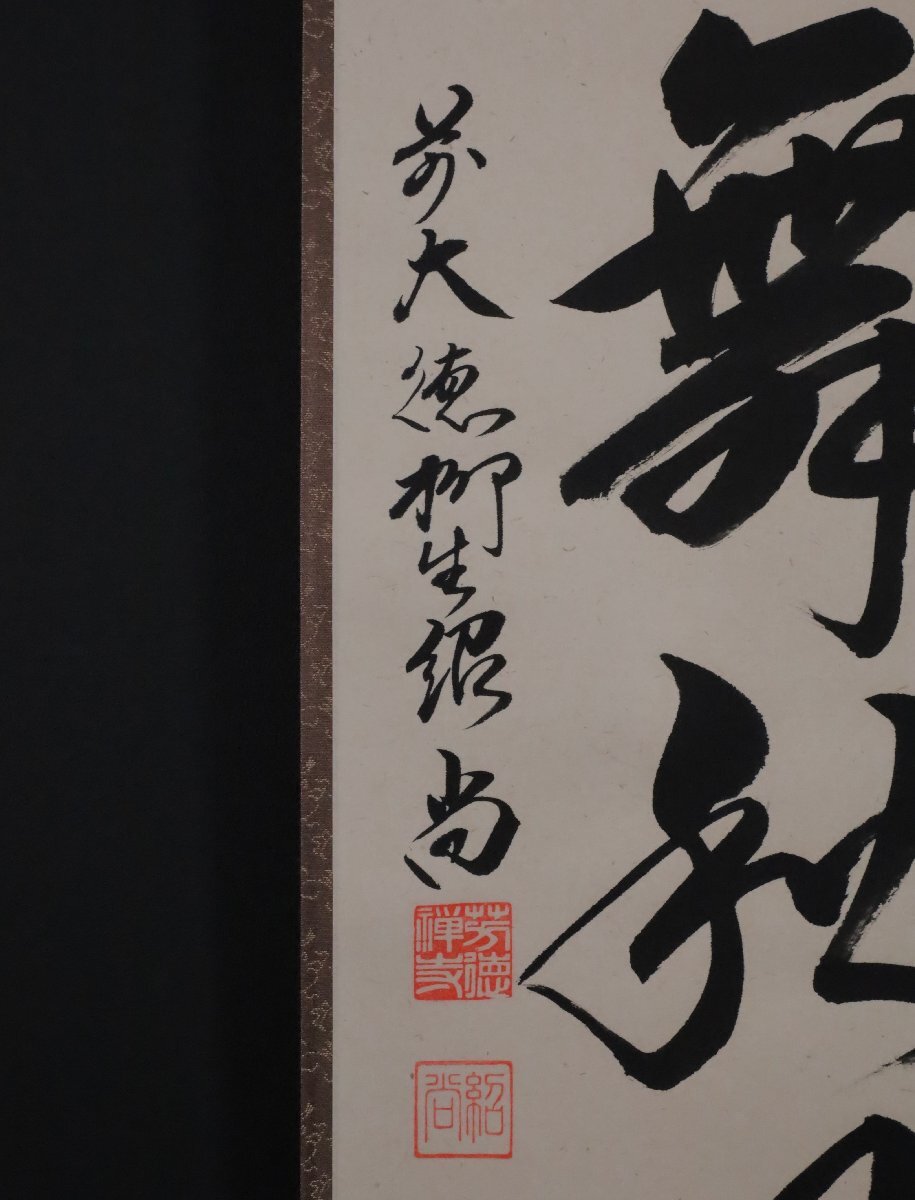 舞
前大徳柳生紹尚
芳徳
禅寺
紹
尚